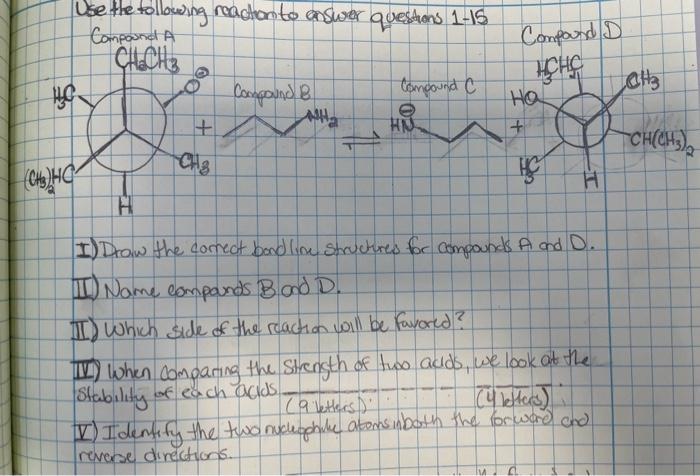 Use the following reaction to answer questions 1-15
Compound A
Compound D
CH2CH3
H3CH2C
CH3
H3C
O⊖
Compound B
Compound C
HO
NH2
⊖
HN
+
⇌
+
CH(CH3)2
(CH3)2HC
CH3
H3C
H
H
I) Draw the correct bond line structures for compounds A and D.
II) Name compounds B and D.
III) Which side of the reaction will be favored?
IV) When comparing the strength of two acids, we look at the
stability of each acids
(9 letters)
(4 letters)
V) Identify the two nucleophilic atoms in both the forward and
reverse directions.